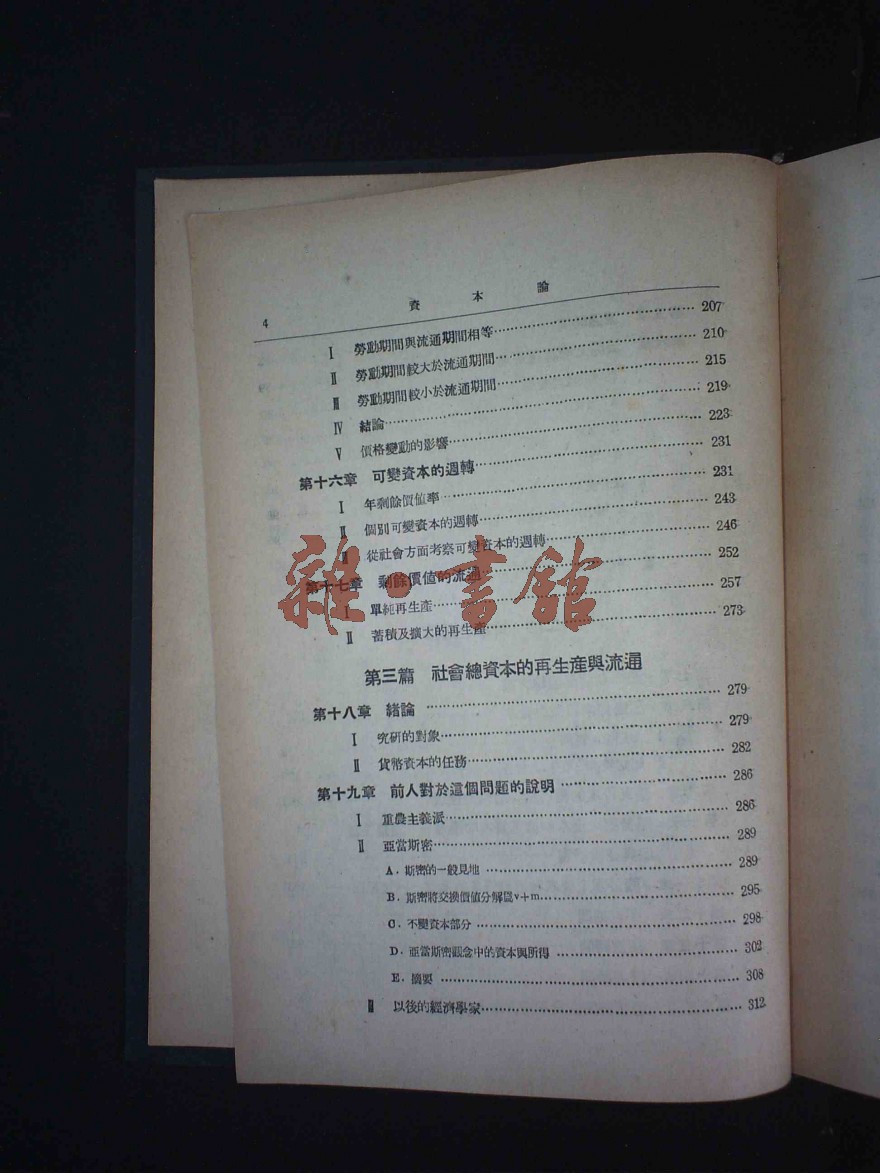 4 資本論
Ⅰ 勞動期間與流通期間相等……207
Ⅱ 勞動期間較大於流通期間……210
Ⅲ 勞動期間較小於流通期間……215
Ⅳ 結論……219
Ⅴ 價格變動的影響……223
第十六章 可變資本的週轉……231
Ⅰ 年剩餘價值率……231
Ⅱ 個別可變資本的週轉……243
Ⅲ 從社會方面考察可變資本的週轉……246
第十七章 剩餘價值的流通……252
Ⅰ 單純再生產……257
Ⅱ 蓄積及擴大的再生產……273
第三篇 社會總資本的再生產與流通
第十八章 緒論……279
Ⅰ 究研的對象……279
Ⅱ 貨幣資本的任務……282
第十九章 前人對於這個問題的說明……286
Ⅰ 重農主義派……286
Ⅱ 亞當斯密……289
A. 斯密的一般見地……289
B. 斯密將交換價值分解爲v+m……295
C. 不變資本部分……298
D. 亞當斯密觀念中的資本與所得……302
E. 摘要……308
Ⅲ 以後的經濟學家……312
雜·書館